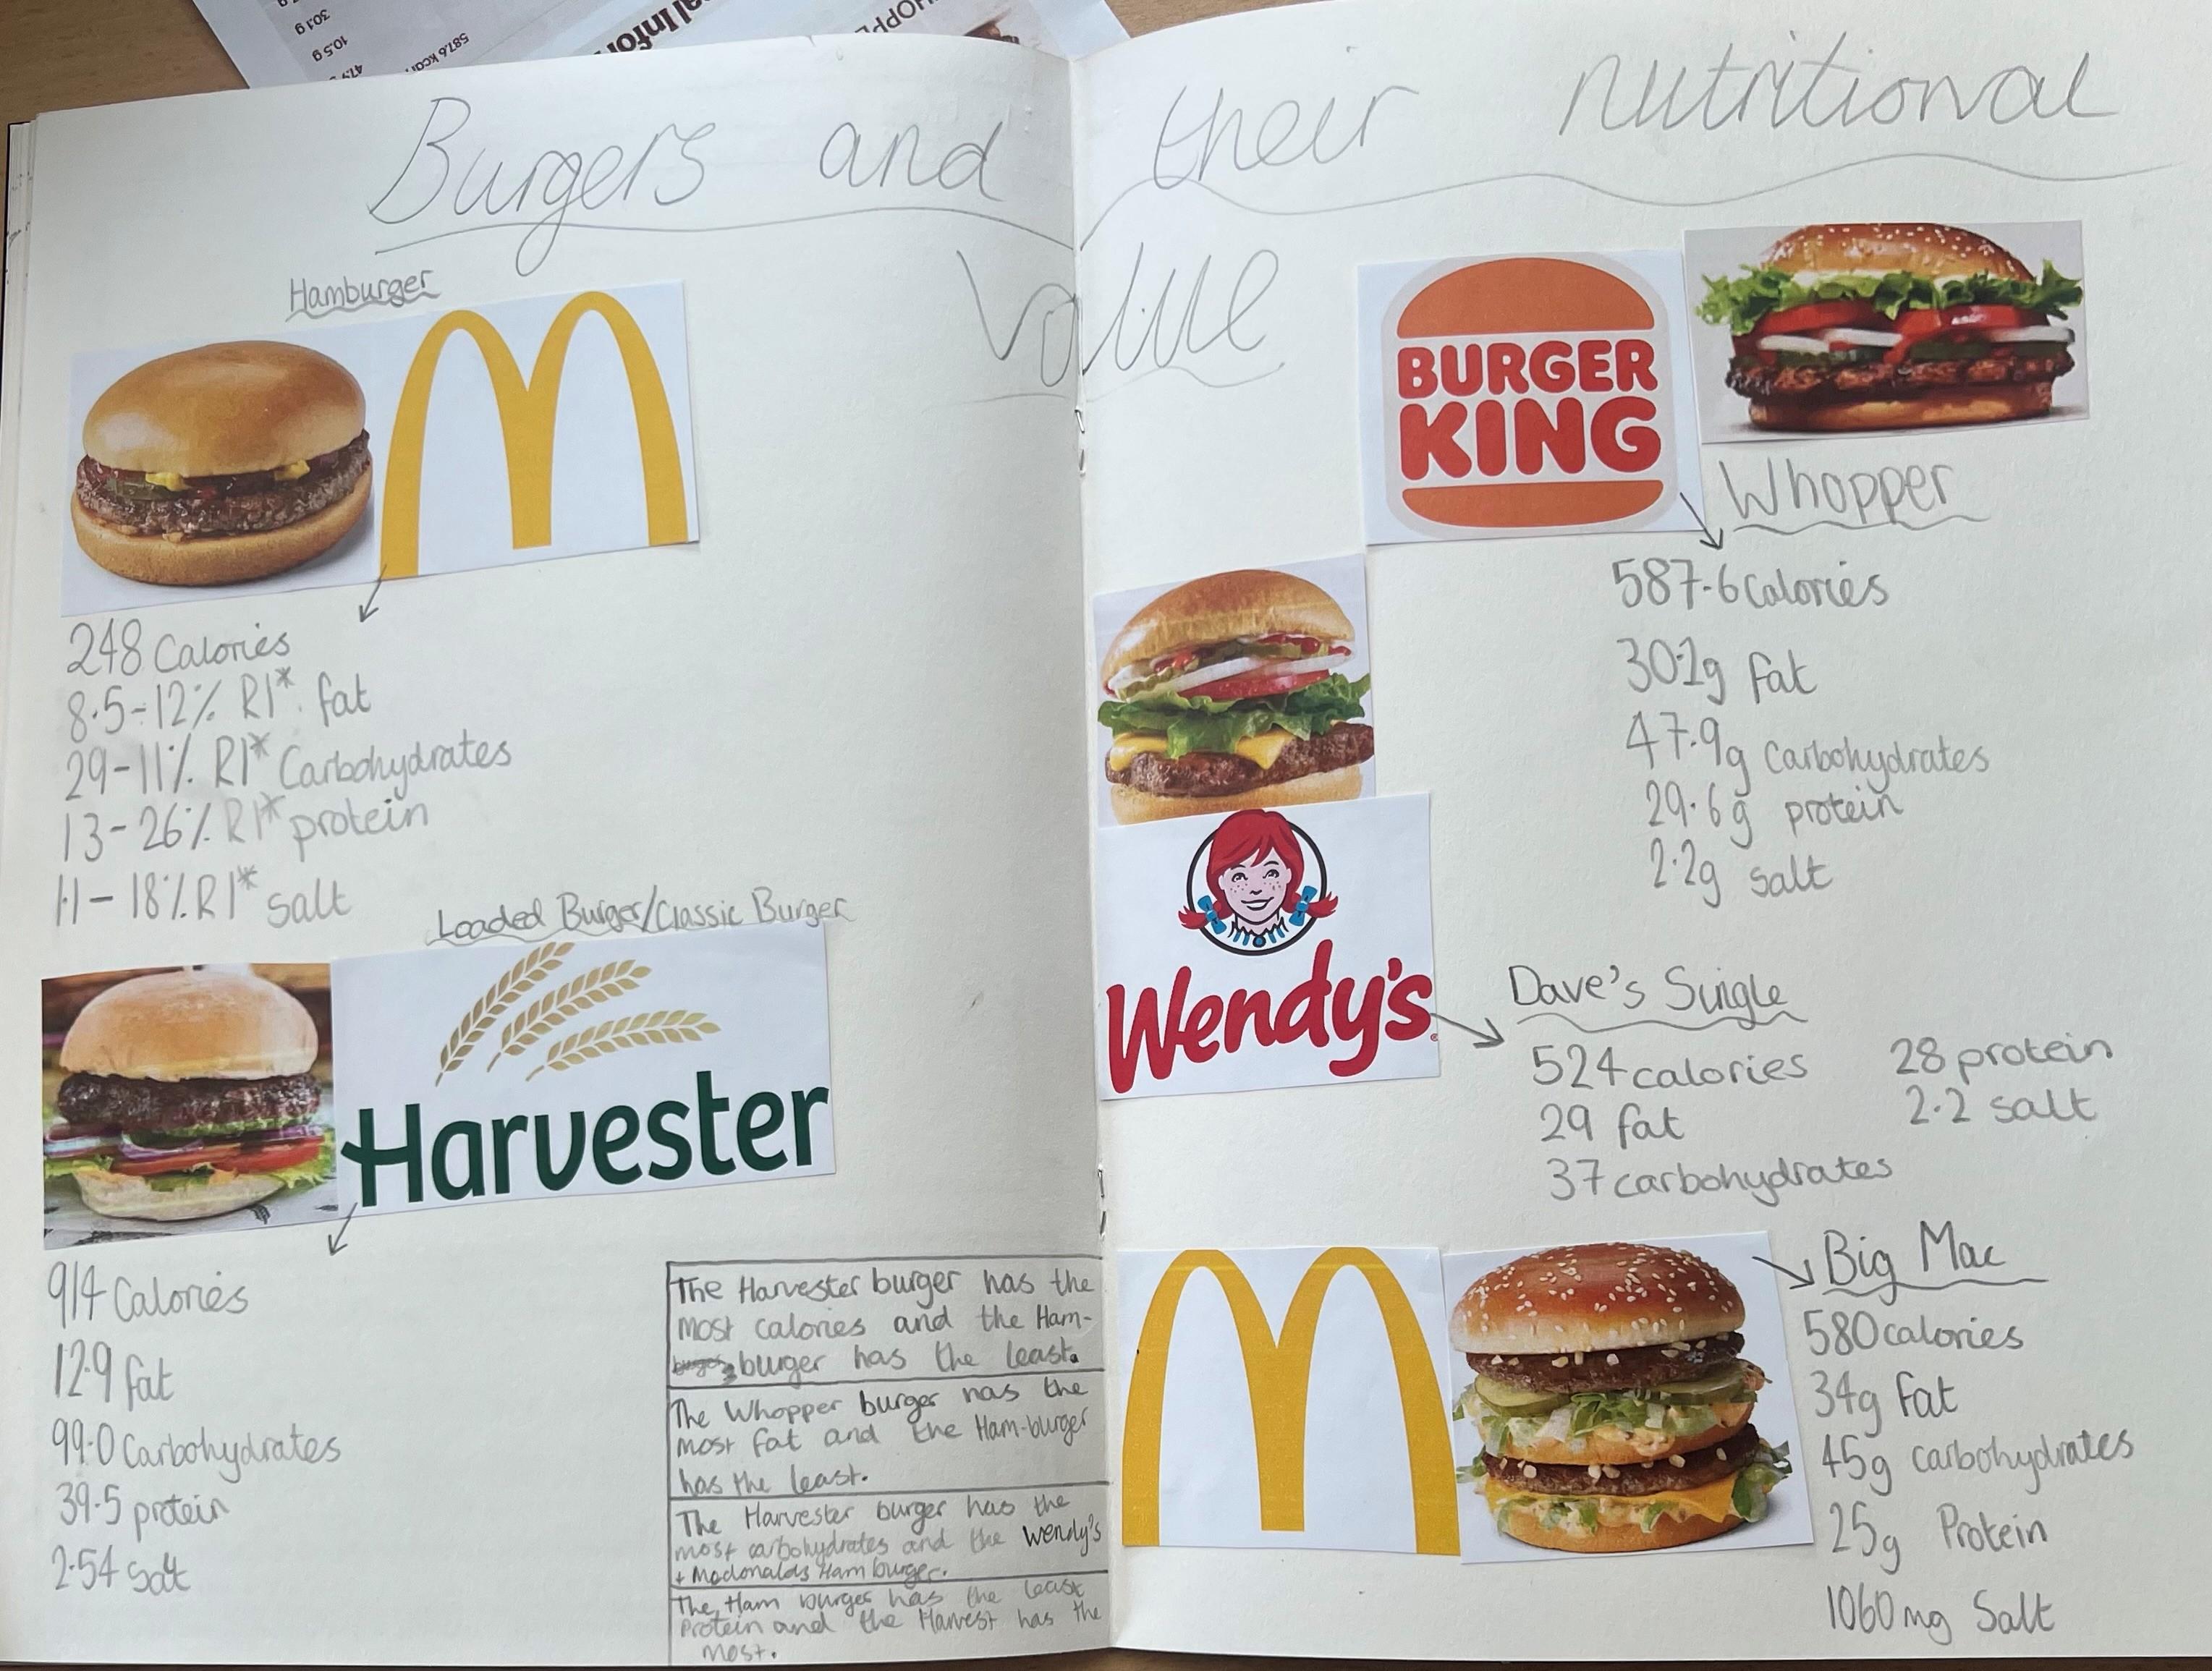 Burgers and their nutritional
value
Hamburger
248 Calories
8.5-12% RI* fat
29-11% RI* Carbohydrates
13-26% RI* protein
1.1-18% RI* salt
Loaded Burger/Classic Burger
Harvester
914 Calories
12.9 fat
99.0 Carbohydrates
39.5 protein
2.54 Salt
The Harvester burger has the
most calories and the Ham-
burger has the least.
The Whopper burger has the
most fat and the Ham-burger
has the least.
The Harvester burger has the
most carbohydrates and the Wendy's
+ Mcdonalds Hamburger.
The Ham burger has the least
Protein and the Harvest has the
most.
BURGER
KING
Whopper
587.6 Calories
30.1g fat
47.9g Carbohydrates
29.6g protein
2.2g salt
Wendy's
Dave's Single
524 calories
29 fat
37 carbohydrates
28 protein
2.2 salt
Big Mac
580 calories
34g fat
45g carbohydrates
25g Protein
1060mg Salt
30.1 g
10.5 g
587.6 kcal